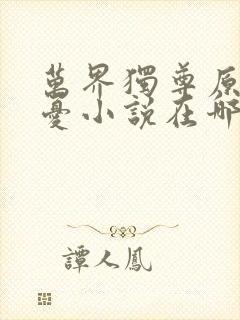 萬界獨尊原
憂小說在哪
譚人鳳